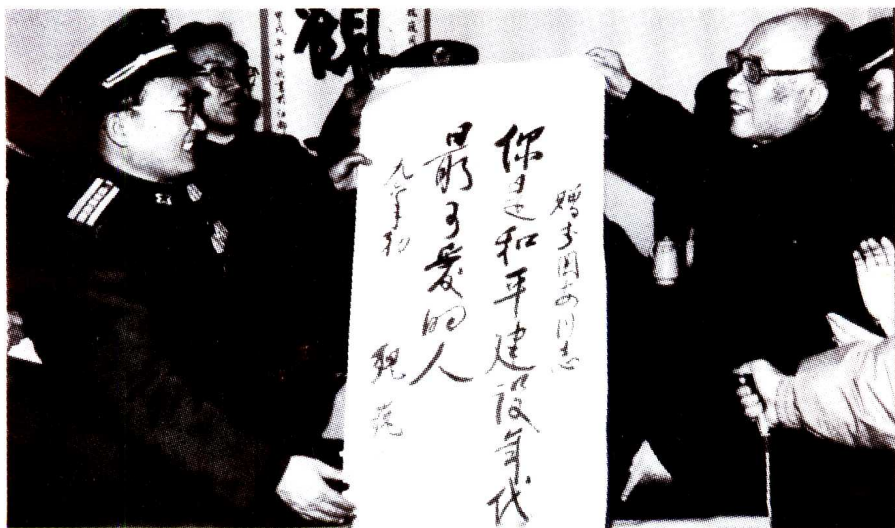 赠李国安同志
你是和平建设年代
最可爱的人
九六年初
魏巍